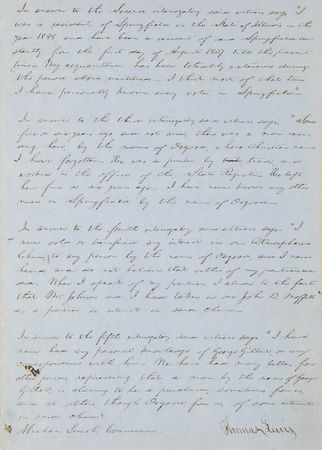 In answer to the second interrogatory said witness says, "I
was a resident of Springfield in the State of Illinois in the
year 1848 and have been a resident of said Springfield con-
stantly for the first day of April 1847 till the present
time. My acquaintance has been tolerably extensive during
the period above mentioned. I think most of that time
I have personally known every voter in Springfield".
In answer to the third interrogatory said witness says, "Some
five or six years ago and not since, there was a man resi-
ding here by the name of Osgood, whose Christian name
I have forgotten. He was a printer by trade, and
worked in the office of the State Register. He left
here five or six years ago. I have never known any other
man in Springfield by the name of Osgood.
In answer to the fourth interrogatory said witness says: "I
never sold or transferred my interest in our Atmospheric
Churn to any person by the name of Osgood, and I never
heard and do not believe that either of my partners ever
did. When I speak of my partners I allude to the fact
that Mr. Johnson and I have taken in one John B. Moffett
as a partner in interest in said churn.
In answer to the fifth interrogatory said witness says "I have
never had any personal knowledge of George Gilbert, or any
correspondence with him. We have had many letters from
other persons representing that a man by the name of George
Gilbert, is claiming to be a purchaser, sometimes from us
and at other, through Osgood from us, of some interest
in said churn".
Abraham Lincoln Commissioner. Thomas Lewis